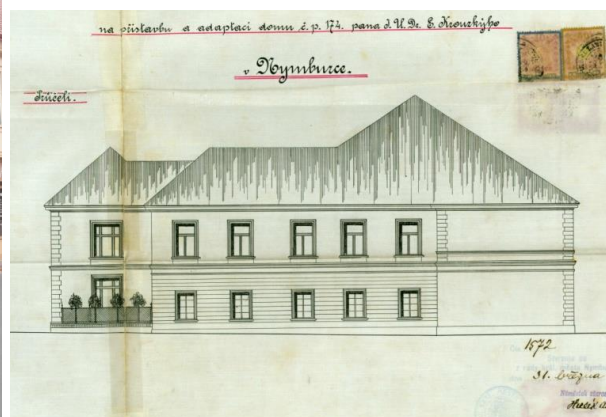 na přístavbu a adaptaci domu č. p. 174. pana J. U. Dr. E. Krouzkýho
v Nymburce.
Průčelí.
1572
31. března